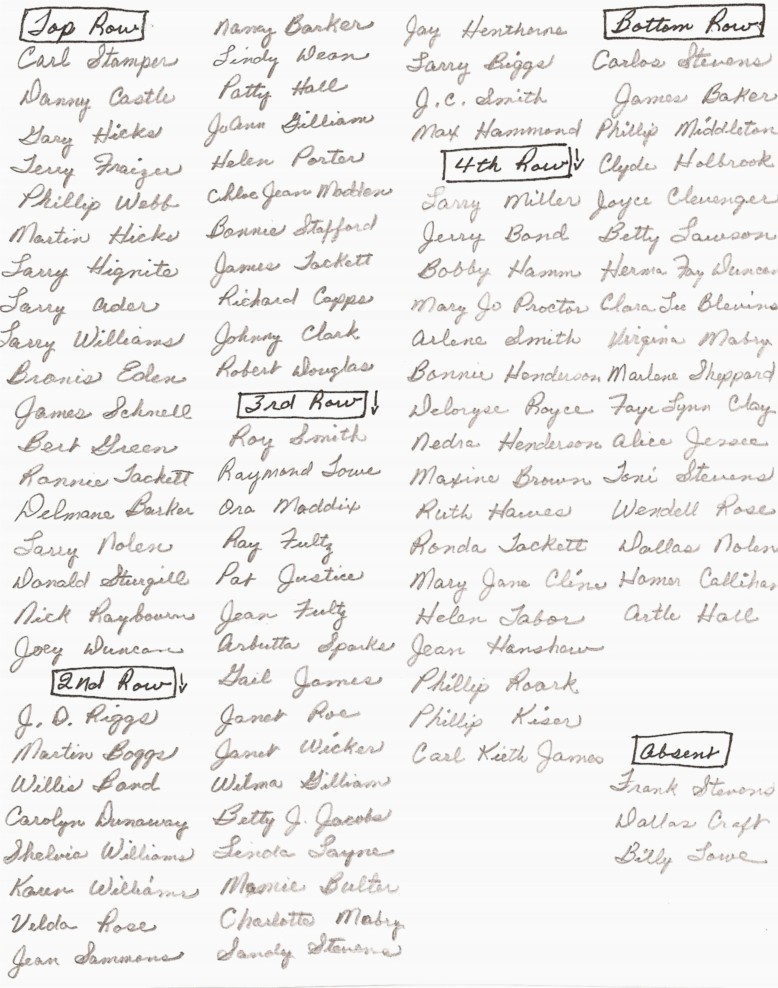 Top Row
Carl Stamper
Danny Castle
Gary Hicks
Terry Fraizer
Phillip Webb
Martin Hicks
Larry Hignite
Larry Ader
Larry Williams
Bronis Eden
James Schnell
Bert Green
Rannie Tackett
Delmane Barker
Larry Nolen
Donald Sturgill
Nick Raybourn
Joey Duncan
2nd Row
J. D. Riggs
Martin Boggs
Willis Bond
Carolyn Dunaway
Shelvia Williams
Karen Williams
Velda Rose
Jean Sammons
Nancy Barker
Lindy Dean
Patty Hall
JoAnn Gilliam
Helen Porter
Chloe Jean Madden
Bonnie Stafford
James Tackett
Richard Capps
Johnny Clark
Robert Douglas
3rd Row
Roy Smith
Raymond Lowe
Ora Maddix
Ray Fultz
Pat Justice
Jean Fultz
Arbutta Sparks
Gail James
Janet Roe
Janet Wicker
Wilma Gilliam
Betty J. Jacobs
Linda Layne
Mamie Bulter
Charlotte Mabry
Sandy Stevens
Jay Henthorne
Larry Biggs
J.C. Smith
Max Hammond
4th Row
Larry Miller
Jerry Bond
Bobby Hamm
Mary Jo Proctor
Arlene Smith
Bonnie Henderson
Deloryse Royce
Nedra Henderson
Maxine Brown
Ruth Hawes
Ronda Tackett
Mary Jane Cline
Helen Tabor
Jean Hanshaw
Phillip Roark
Phillip Kiser
Carl Kieth James
Bottom Row
Carlos Stevens
James Baker
Phillip Middleton
Clyde Holbrook
Joyce Clevenger
Betty Lawson
Herma Fay Duncan
Clara Sue Blevins
Virgina Mabry
Marlene Sheppard
Faye Lynn Clay
Alice Jessee
Toni Stevens
Wendell Rose
Dallas Nolen
Homer Callihan
Artle Hall
Absent
Frank Stevens
Dallas Craft
Billy Lowe